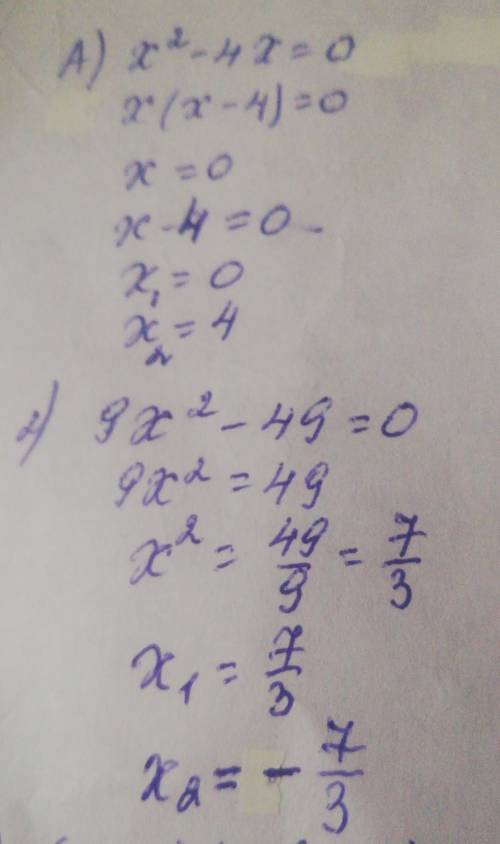 А) x² - 4x = 0
x(x - 4) = 0
x = 0
x - 4 = 0
x₁ = 0
x₂ = 4
2) 9x² - 49 = 0
9x² = 49
x² = 49/9 = 7/3
x₁ = 7/3
x₂ = - 7/3